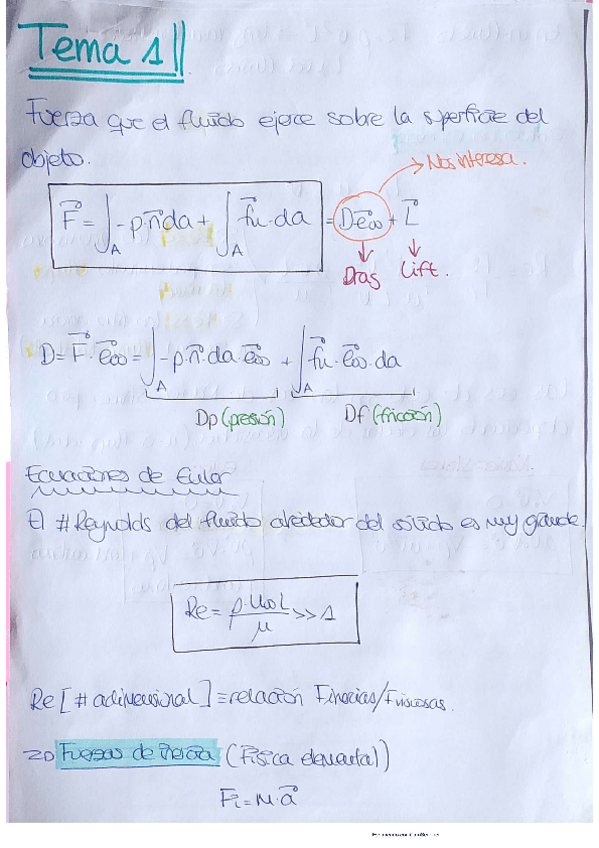 Tema 1
Fuerza que el fluido ejerce sobre la superficie del
objeto.
Nos interesa.
F⃗ = ∫_A -p·n⃗ da + ∫_A f⃗u·da = D·e⃗∞ + L⃗
Drag Lift.
D = F⃗·e⃗∞ = ∫_A -p·n⃗·da·e⃗∞ + ∫_A f⃗u·e⃗∞·da
Dp (presión) Df (fricción)
Ecuaciones de Euler
El #Reynolds del fluido alrededor del sólido es muy grande.
Re = ρ·U∞L/μ >> 1
Re [# adimensional] ≡ relación Finercias/Fviscosas.
Fuerzas de inercia (Física elemental)
Fi = m·a⃗